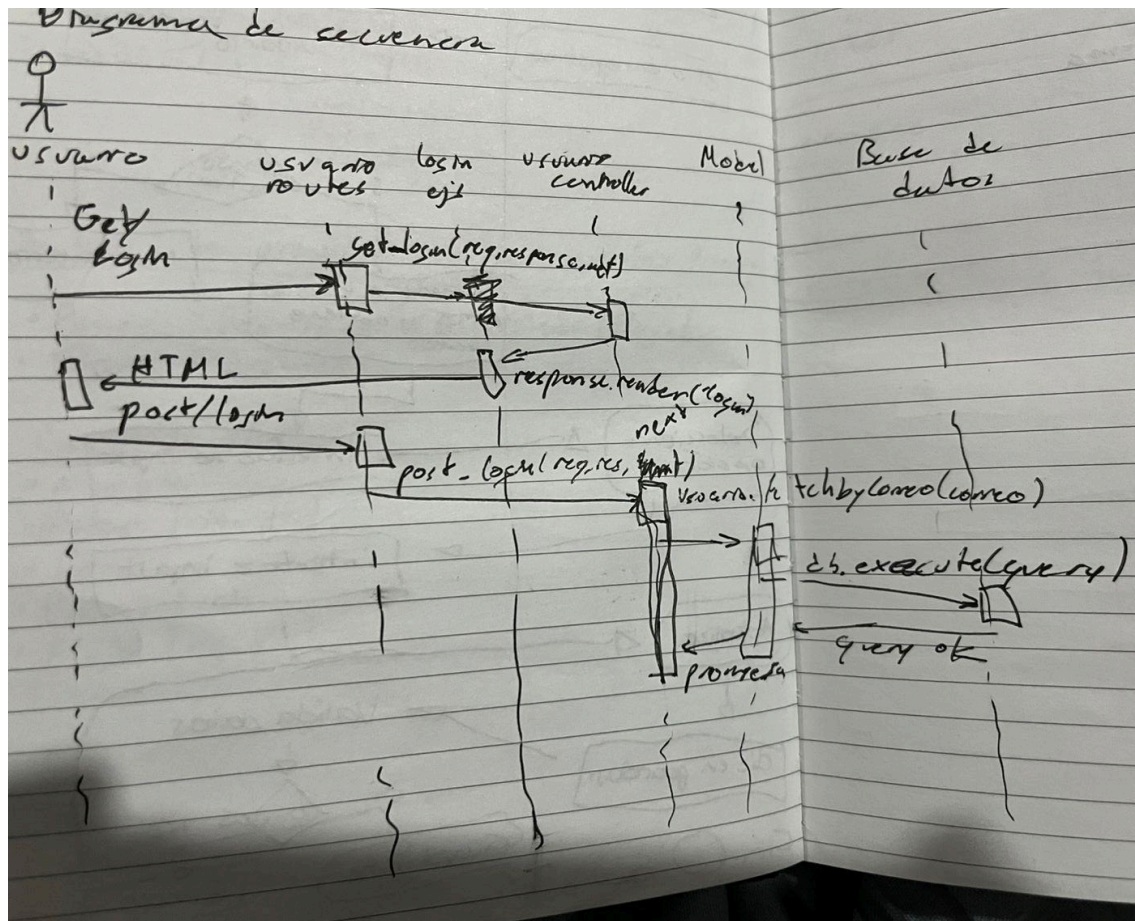 Diagrama de secuencia
usuario
usuario routes
login ejs
usuario controller
Model
Base de datos
Get/ Login
get_login(req, response, next)
HTML
response.render("login")
post/login
next
post_login(req, res, )
usuario.fetchbyCorreo(correo)
db.execute(query)
query ok
promesa